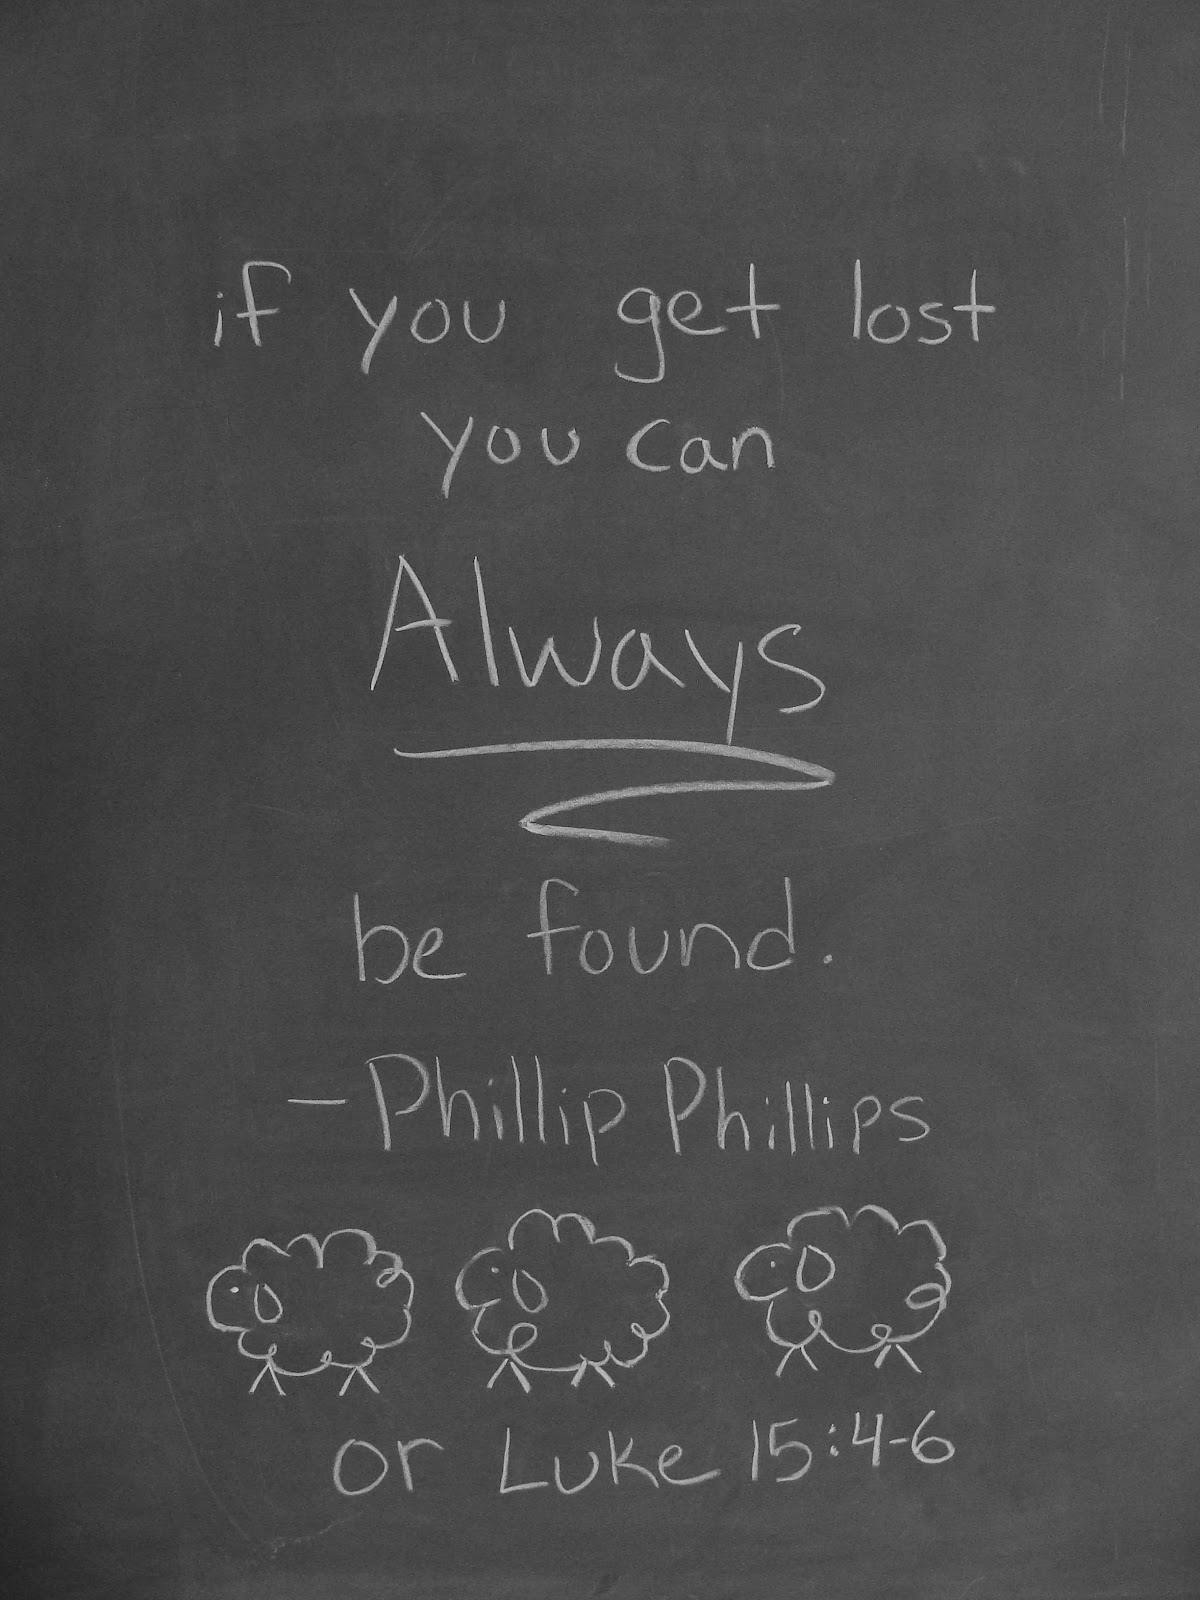 if you get lost
you can
Always
be found.
- Phillip Phillips
or Luke 15:4-6